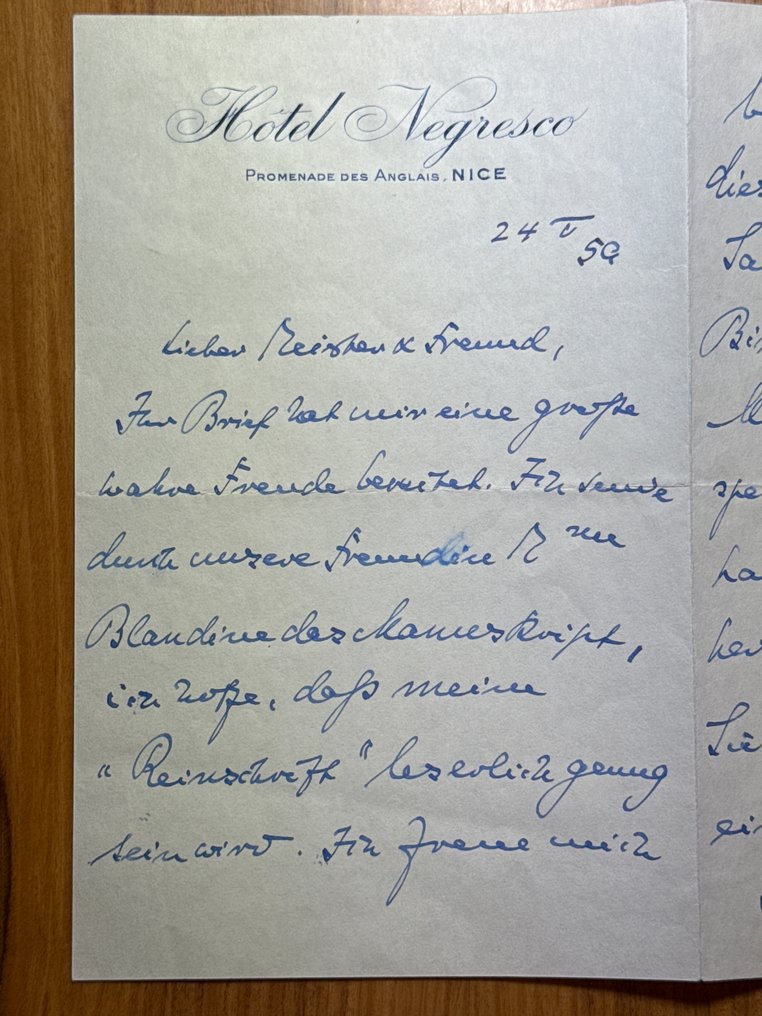 Hôtel Negresco
PROMENADE DES ANGLAIS, NICE
24 V 59
Lieber Meister & Freund,
Ihr Brief hat mir eine große
wahre Freude bereitet. Ich sende
durch unsere Freundin Mme
Blandine das Manuskript,
ich hoffe, daß meine
"Reinschrift" leserlich genug
sein wird. Ich freue mich
b
dies
Sa
Bi
M
spe
ha
her
Sie
ei